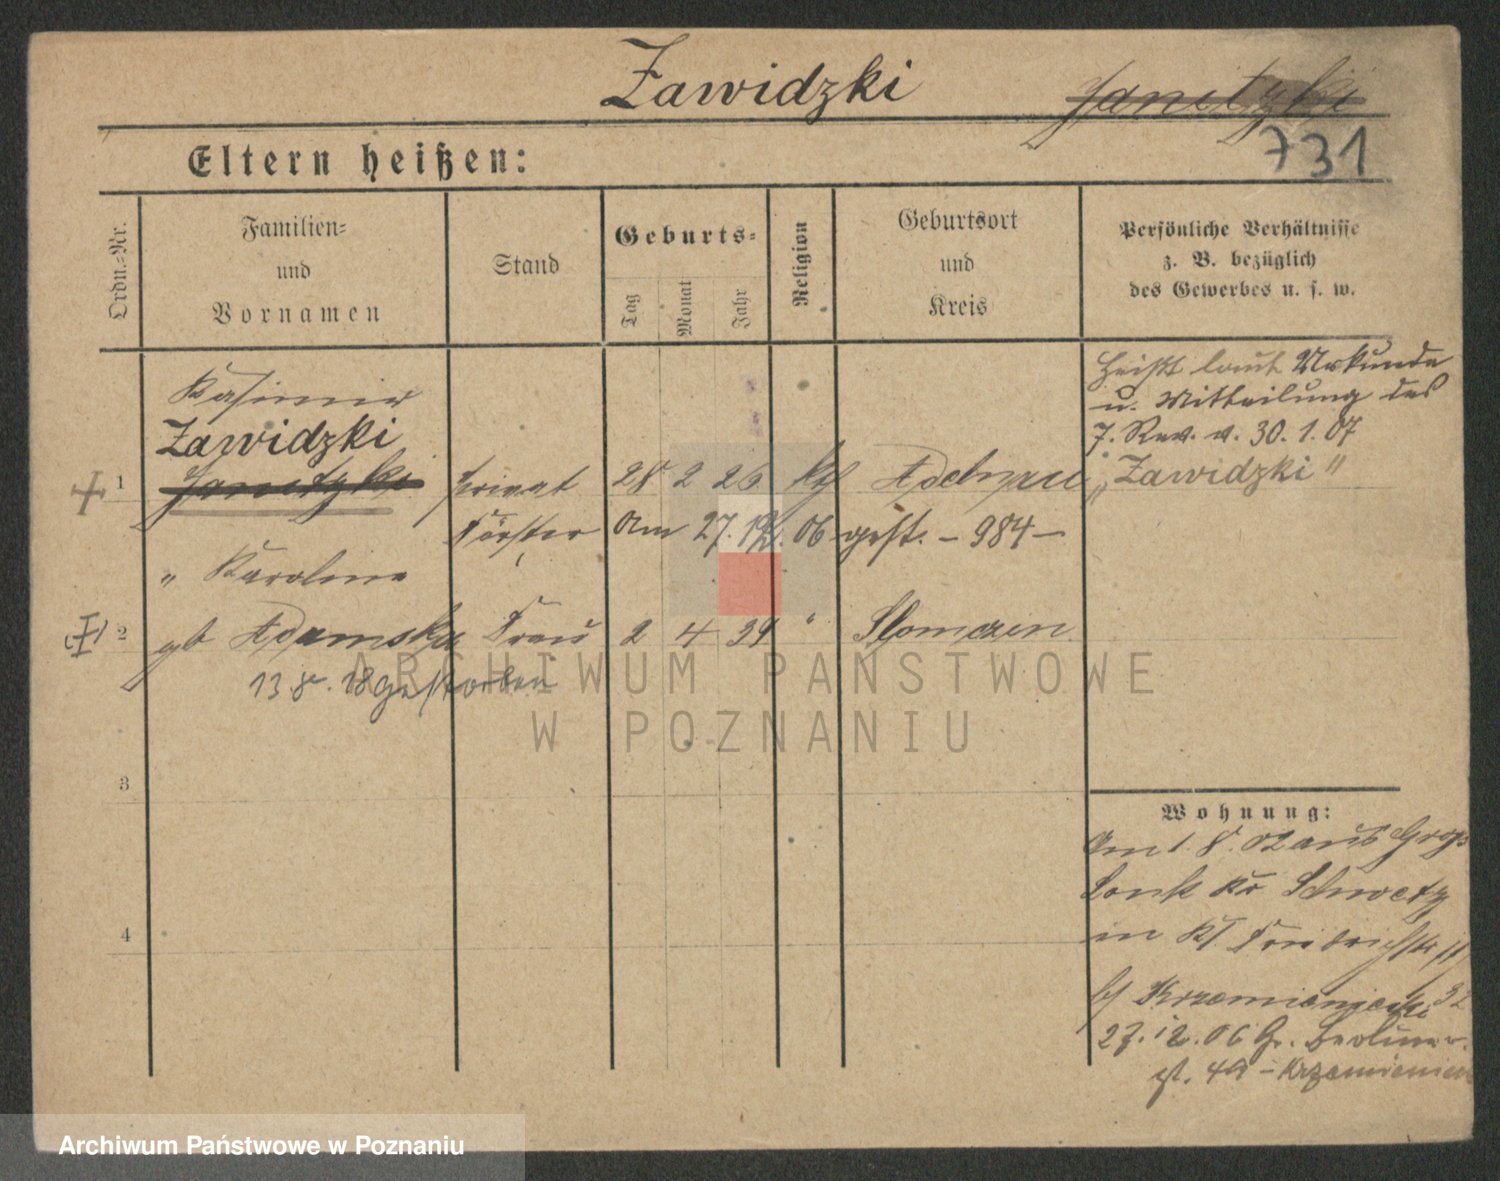 Zawidzki Janitzki
731
Eltern heißen:
Ordn.-Nr.
Familien-
und
Vornamen
Stand
Geburts-
Tag
Monat
Jahr
Religion
Geburtsort
und
Kreis
Persönliche Verhältnisse
z. B. bezüglich
des Gewerbes u. s. w.
Kasimir
Zawidzki
1 Janitzki privat 28 2 26 kth Adelnau
Förster Am 27.12.06 gest. – 984 –
" Karoline
2 gb Adamska Frau 2 4 39 " Slomczen
13.8.18 gestorben
3
4
Heißt laut Urkunde
u. Mitteilung des
7. Rev. v. 30.1.07
„Zawidzki"
Wohnung:
Am 1.8.02 aus
Kr Schwetz
in
Krzemieniecki 32
27.12.06 Gr. Berliner-
st. – Krzemieniecki
ARCHIWUM PAŃSTWOWE
W POZNANIU
Archiwum Państwowe w Poznaniu